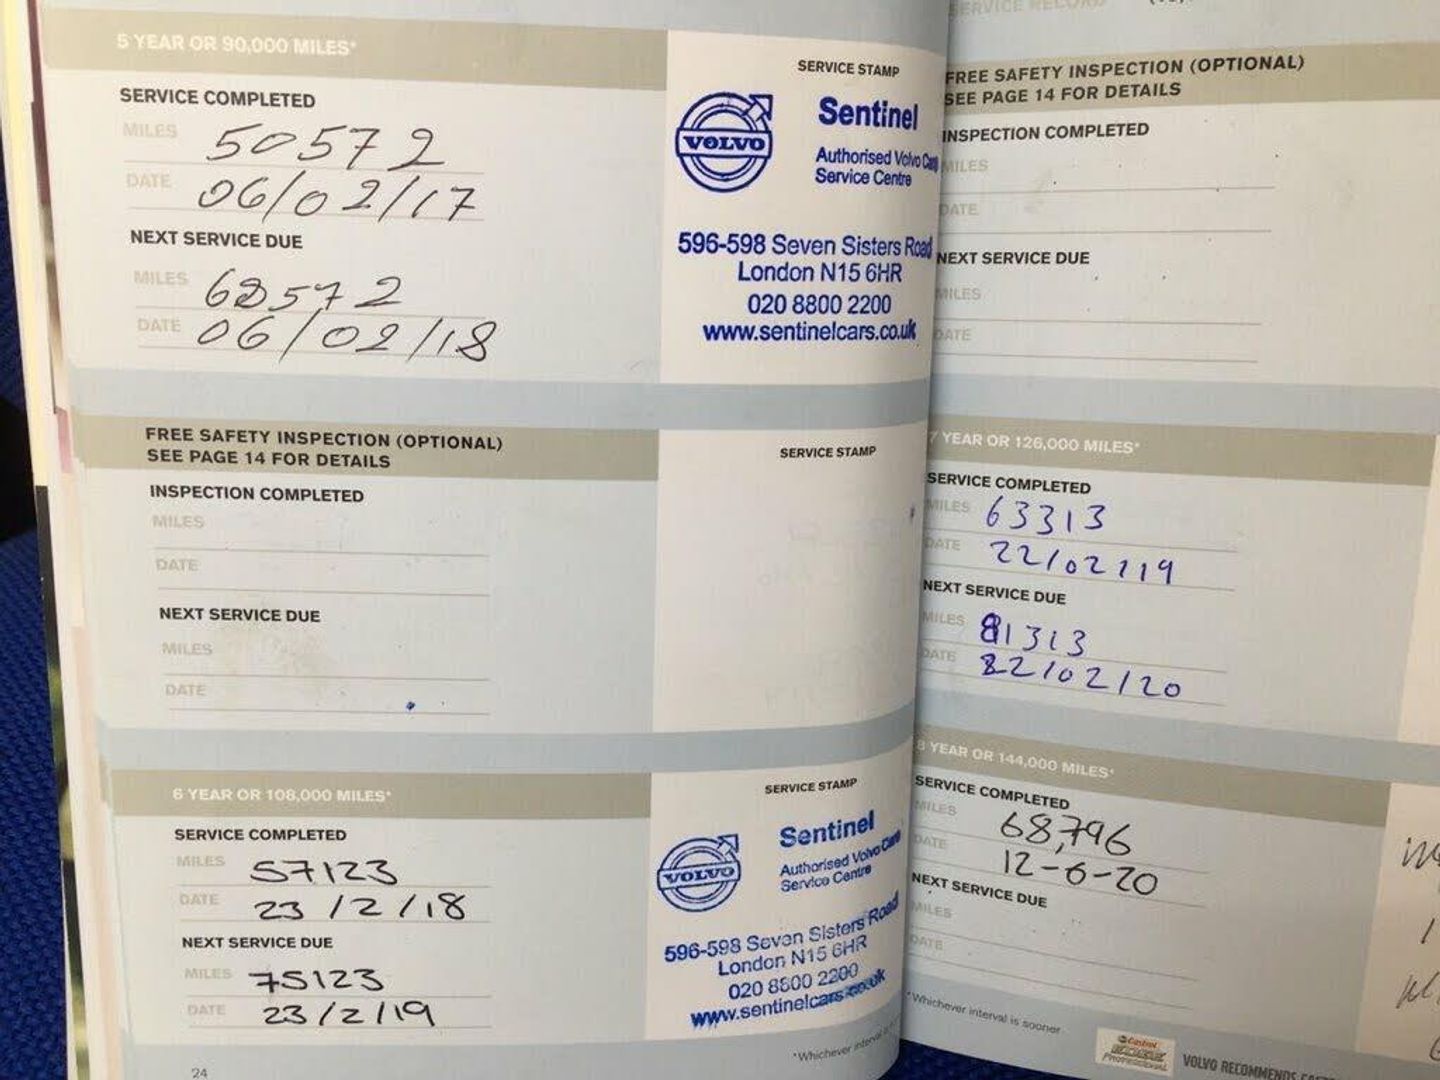 5 YEAR OR 90,000 MILES*
SERVICE COMPLETED
MILES 50572
DATE 06/02/17
NEXT SERVICE DUE
MILES 68572
DATE 06/02/18
SERVICE STAMP
VOLVO
Sentinel
Authorised Volvo Cars
Service Centre
596-598 Seven Sisters Road
London N15 6HR
020 8800 2200
www.sentinelcars.co.uk
FREE SAFETY INSPECTION (OPTIONAL)
SEE PAGE 14 FOR DETAILS
INSPECTION COMPLETED
MILES
DATE
NEXT SERVICE DUE
MILES
DATE
SERVICE STAMP
6 YEAR OR 108,000 MILES*
SERVICE COMPLETED
MILES 57123
DATE 23/2/18
NEXT SERVICE DUE
MILES 75123
DATE 23/2/19
SERVICE STAMP
VOLVO
Sentinel
Authorised Volvo Cars
Service Centre
596-598 Seven Sisters Road
London N15 6HR
020 8800 2200
www.sentinelcars.co.uk
*Whichever interval is
24
SERVICE RECORD
FREE SAFETY INSPECTION (OPTIONAL)
SEE PAGE 14 FOR DETAILS
INSPECTION COMPLETED
MILES
DATE
NEXT SERVICE DUE
MILES
DATE
7 YEAR OR 126,000 MILES*
SERVICE COMPLETED
MILES 63313
DATE 22/02/19
NEXT SERVICE DUE
MILES 81313
DATE 22/02/20
8 YEAR OR 144,000 MILES*
SERVICE COMPLETED
MILES 68,796
DATE 12-6-20
NEXT SERVICE DUE
MILES
DATE
*Whichever interval is sooner
Castrol
EDGE
PROFESSIONAL
VOLVO RECOMMENDS